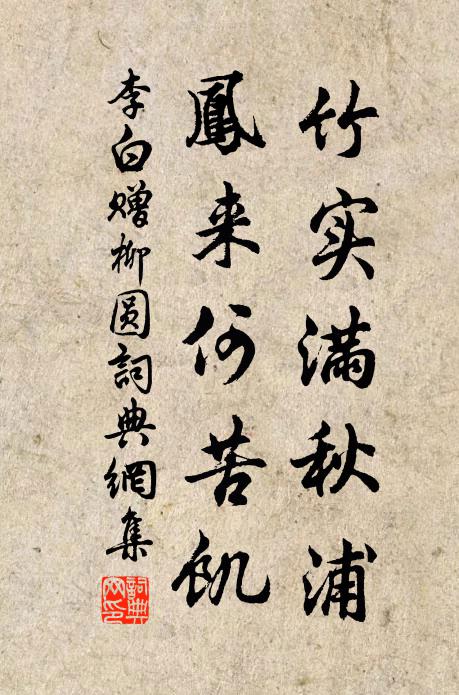 竹实满秋浦
鳳来何苦飢
李白赠柳圆詞典網集
詞典網印